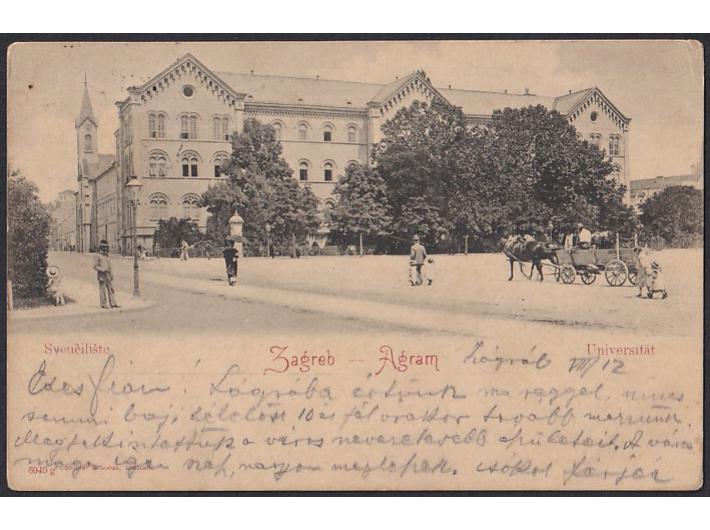 Sveučilište
Zagreb — Agram
Universität
Zágráb VIII/12
Édes fiam! Zágrábba értünk ma reggel, nincs
semmi baj, délelőtt 10 és fél órakor tovább
Megtekintettük a város nevezetesebb épületeit. A város
maga igen szép, nagyon meglepett. csókol
6949